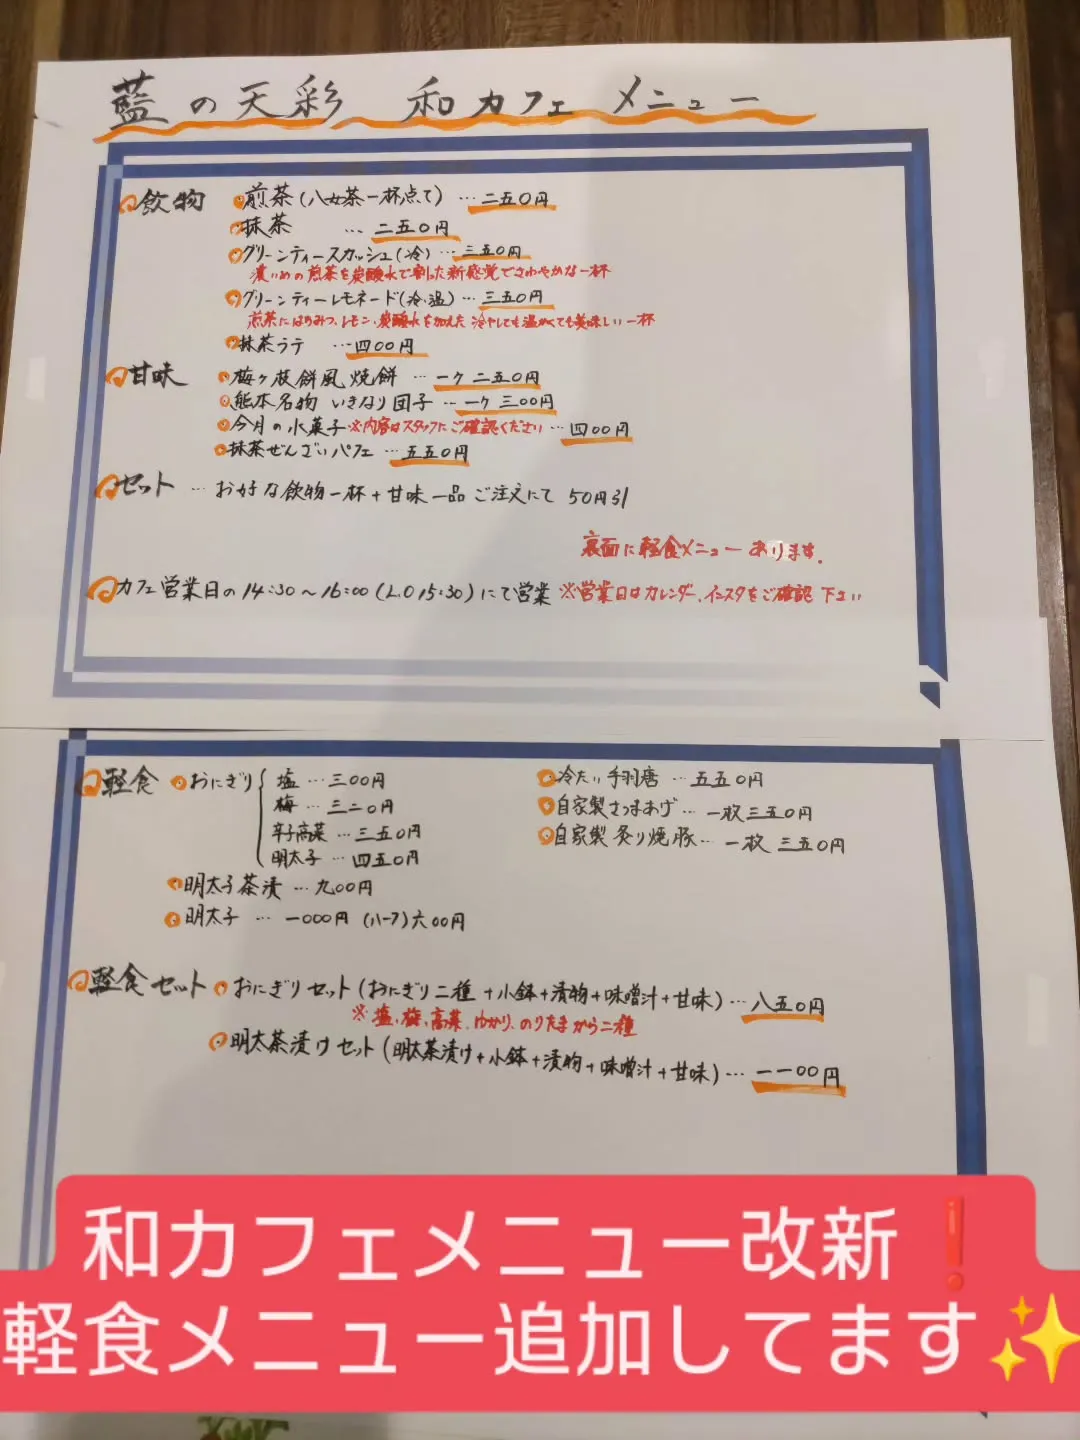 藍の天彩 和カフェ メニュー
飲物
煎茶(八女茶一杯点て) … 二五〇円
抹茶 … 二五〇円
グリーンティースカッシュ(冷) … 三五〇円
濃いめの煎茶を炭酸水で割った新感覚でさわやかな一杯
グリーンティーレモネード(冷・温) … 三五〇円
煎茶にはちみつ、レモン、炭酸水を加えた 冷やしても温かくても美味しい一杯
抹茶ラテ … 四〇〇円
甘味
梅ヶ枝餅風 焼餅 … 一ケ 二五〇円
熊本名物 いきなり団子 … 一ケ 三〇〇円
今月の水菓子 ※内容はスタッフにご確認ください … 四〇〇円
抹茶ぜんざいパフェ … 五五〇円
セット … お好な飲物一杯+甘味一品 ご注文にて 50円引
裏面に軽食メニューあります。
カフェ営業日の14:30~16:00(L.O 15:30)にて営業 ※営業日はカレンダー、インスタをご確認 下さい
軽食
おにぎり
塩 … 三〇〇円
梅 … 三二〇円
辛子高菜 … 三五〇円
明太子 … 四五〇円
明太子茶漬 … 九〇〇円
明太子 … 一〇〇〇円 (ハーフ)六〇〇円
冷たい手羽唐 … 五五〇円
自家製さつまあげ … 一枚三五〇円
自家製 炙り焼豚 … 一枚 三五〇円
軽食セット
おにぎりセット(おにぎり二種+小鉢+漬物+味噌汁+甘味) … 八五〇円
※塩、梅、高菜、ゆかり、のりたまから二種
明太茶漬けセット(明太茶漬け+小鉢+漬物+味噌汁+甘味) … 一一〇〇円
和カフェメニュー改新❗
軽食メニュー追加してます✨